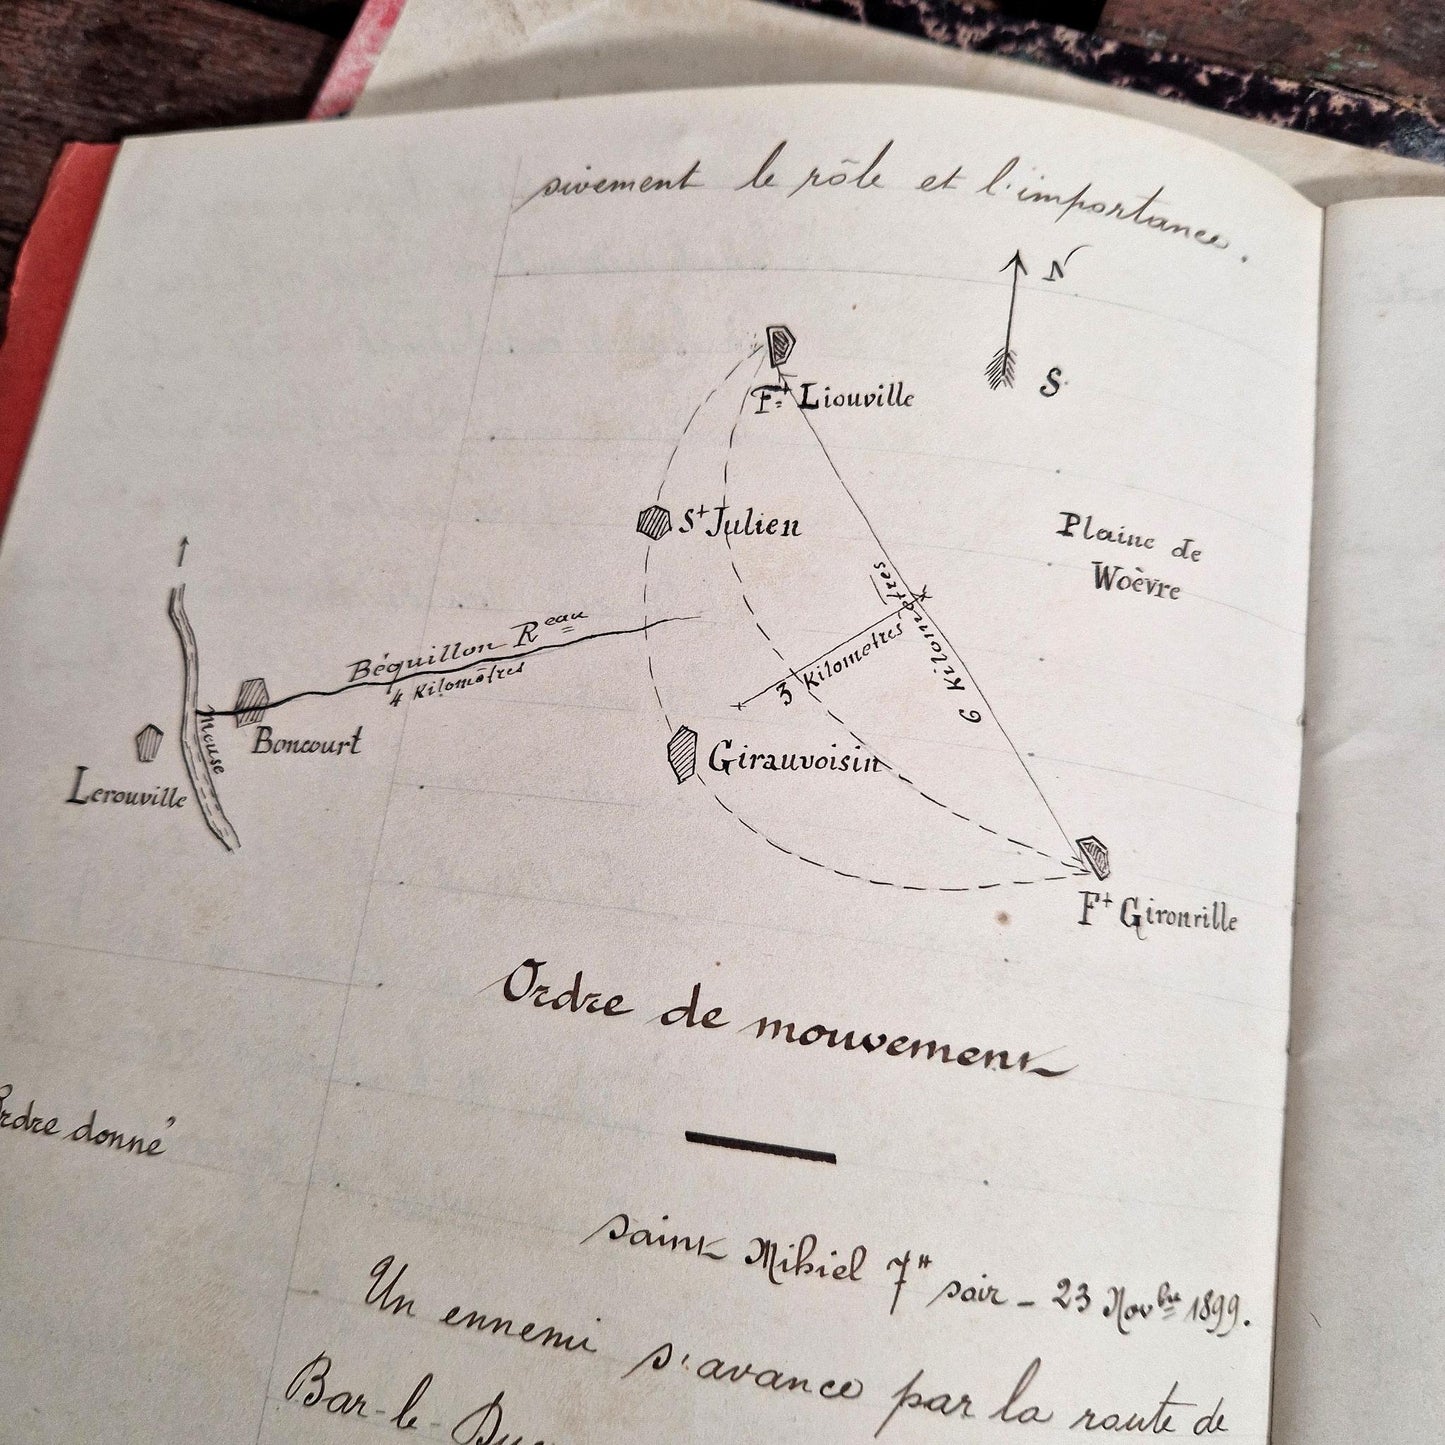 sivement le rôle et l'importance.
N
S
Ft Liouville
St Julien
Plaine de
Woëvre
6 Kilomètres
3 Kilomètres
Béquillon Reau
4 Kilomètres
Meuse
Boncourt
Lerouville
Girauvoisin
Ft Gironville
Ordre de mouvement
Ordre donné
Saint Mihiel 7h soir - 23 Novbre 1899.
Un ennemi s'avance par la route de
Bar-le-Duc